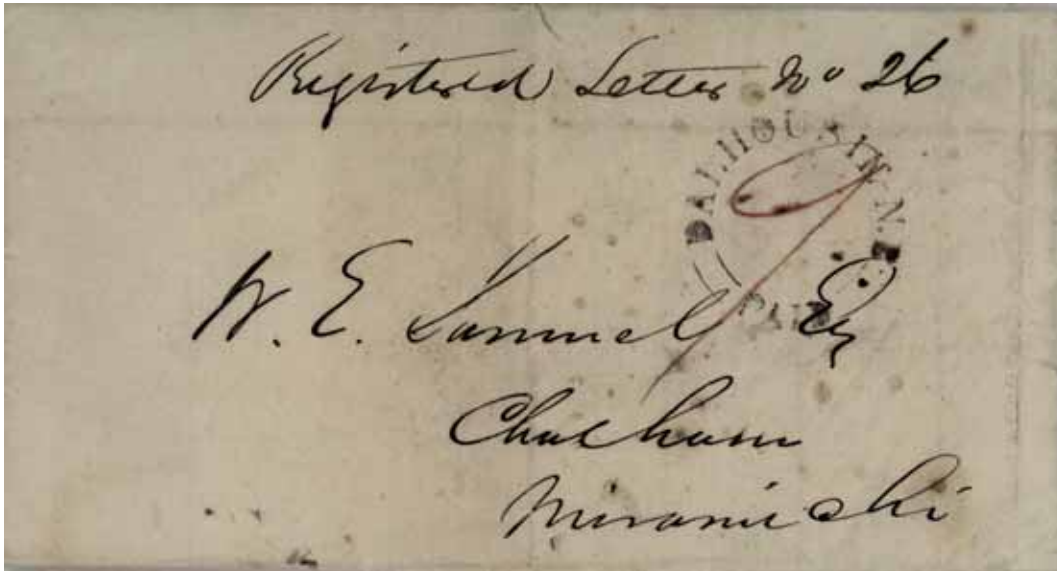 Registered Letter No 26
DALHOUSIE N.B.
9
PAID
W. E. Samuel Esq
Chatham
Miramichi